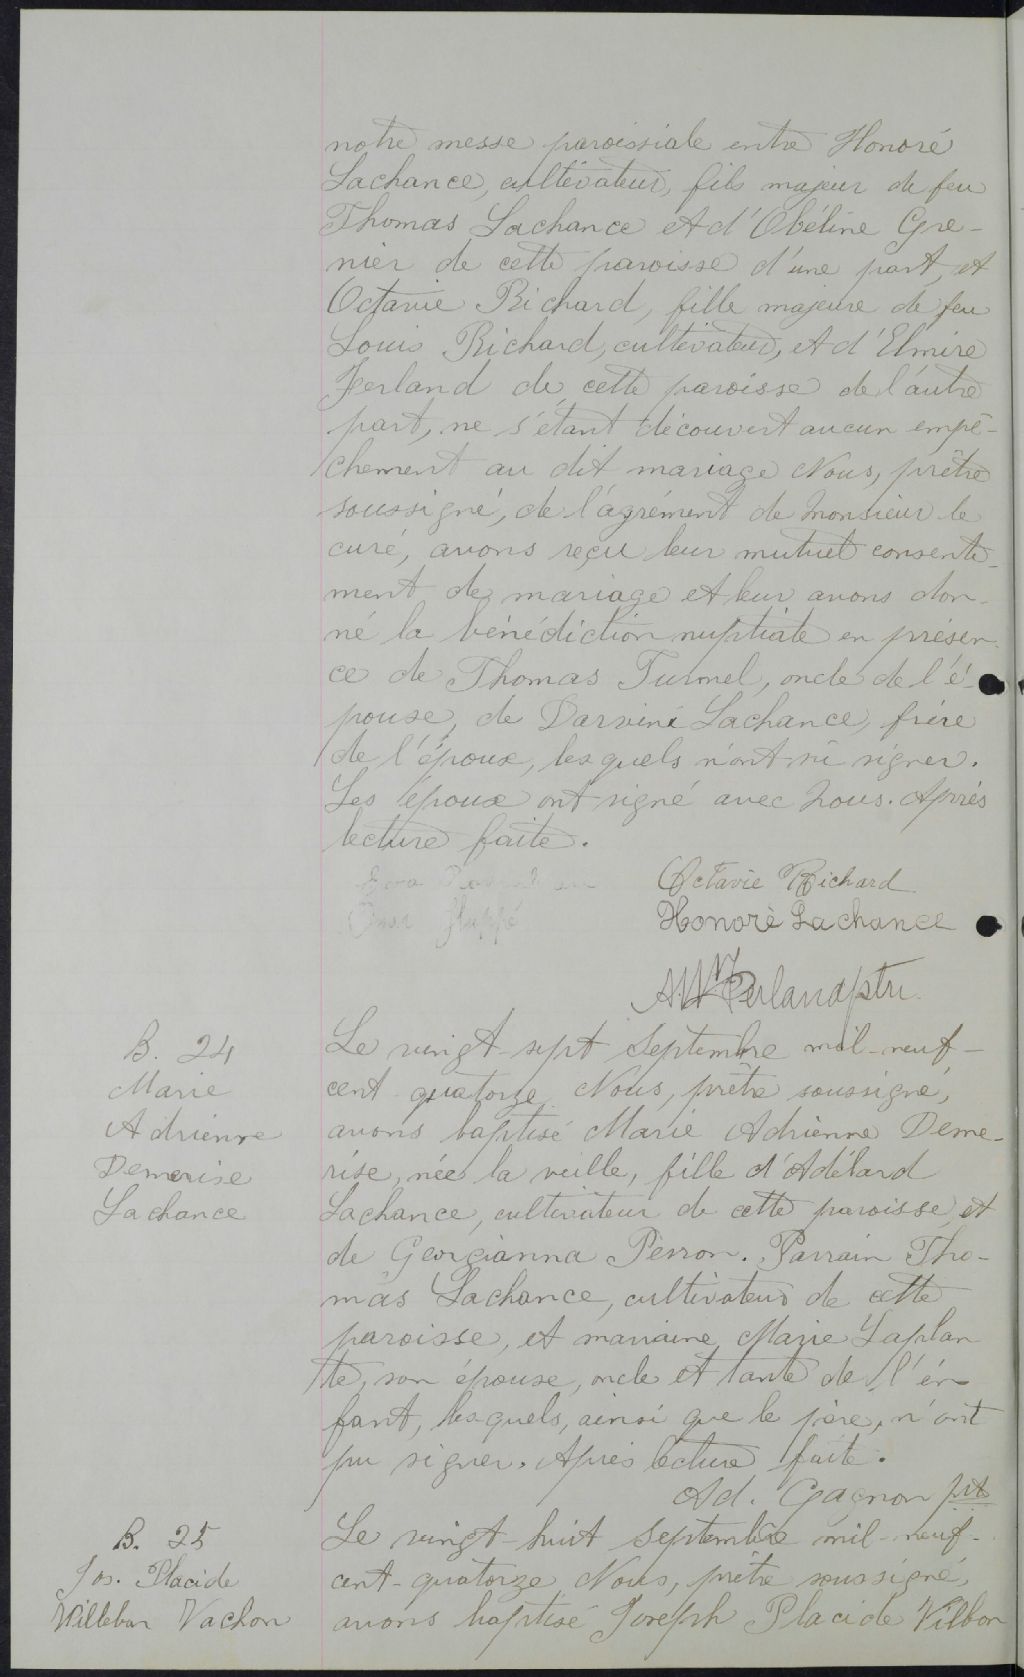 notre messe paroissiale entre Honoré
Lachance, cultivateur, fils majeur de feu
Thomas Lachance et d'Obéline Gre-
nier de cette paroisse d'une part, et
Octavie Richard, fille majeure de feu
Louis Richard, cultivateur, et d'Elmire
Ferland de cette paroisse de l'autre
part, ne s'étant découvert aucun empê-
chement au dit mariage Nous, prêtre
soussigné, de l'agrément de Monsieur le
curé, avons reçu leur mutuel consente-
ment de mariage et leur avons don-
né la bénédiction nuptiale en présen-
ce de Thomas Turmel, oncle de l'é-
pouse, de Darviné Lachance, frère
de l'époux, lesquels n'ont su signer.
Les époux ont signé avec Nous. Après
lecture faite.
Octavie Richard
Honoré Lachance
Ferland ptre
B. 24
Marie
Adrienne
Demerise
Lachance
Le vingt-sept Septembre mil-neuf-
cent quatorze Nous, prêtre soussigné,
avons baptisé Marie Adrienne Deme-
rise, née la veille, fille d'Adélard
Lachance, cultivateur de cette paroisse, et
de Georgianna Perron. Parrain Tho-
mas Lachance, cultivateur de cette
paroisse, et marraine Marie Laplan-
te, son épouse, oncle et tante de l'en-
fant, lesquels, ainsi que le père, n'ont
pu signer. Après lecture faite.
Ad. Gagnon ptr
B. 25
Jos. Placide
Willebon Vachon
Le vingt-huit Septembre mil-neuf-
cent-quatorze Nous, prêtre soussigné,
avons baptisé Joseph Placide Vilbon